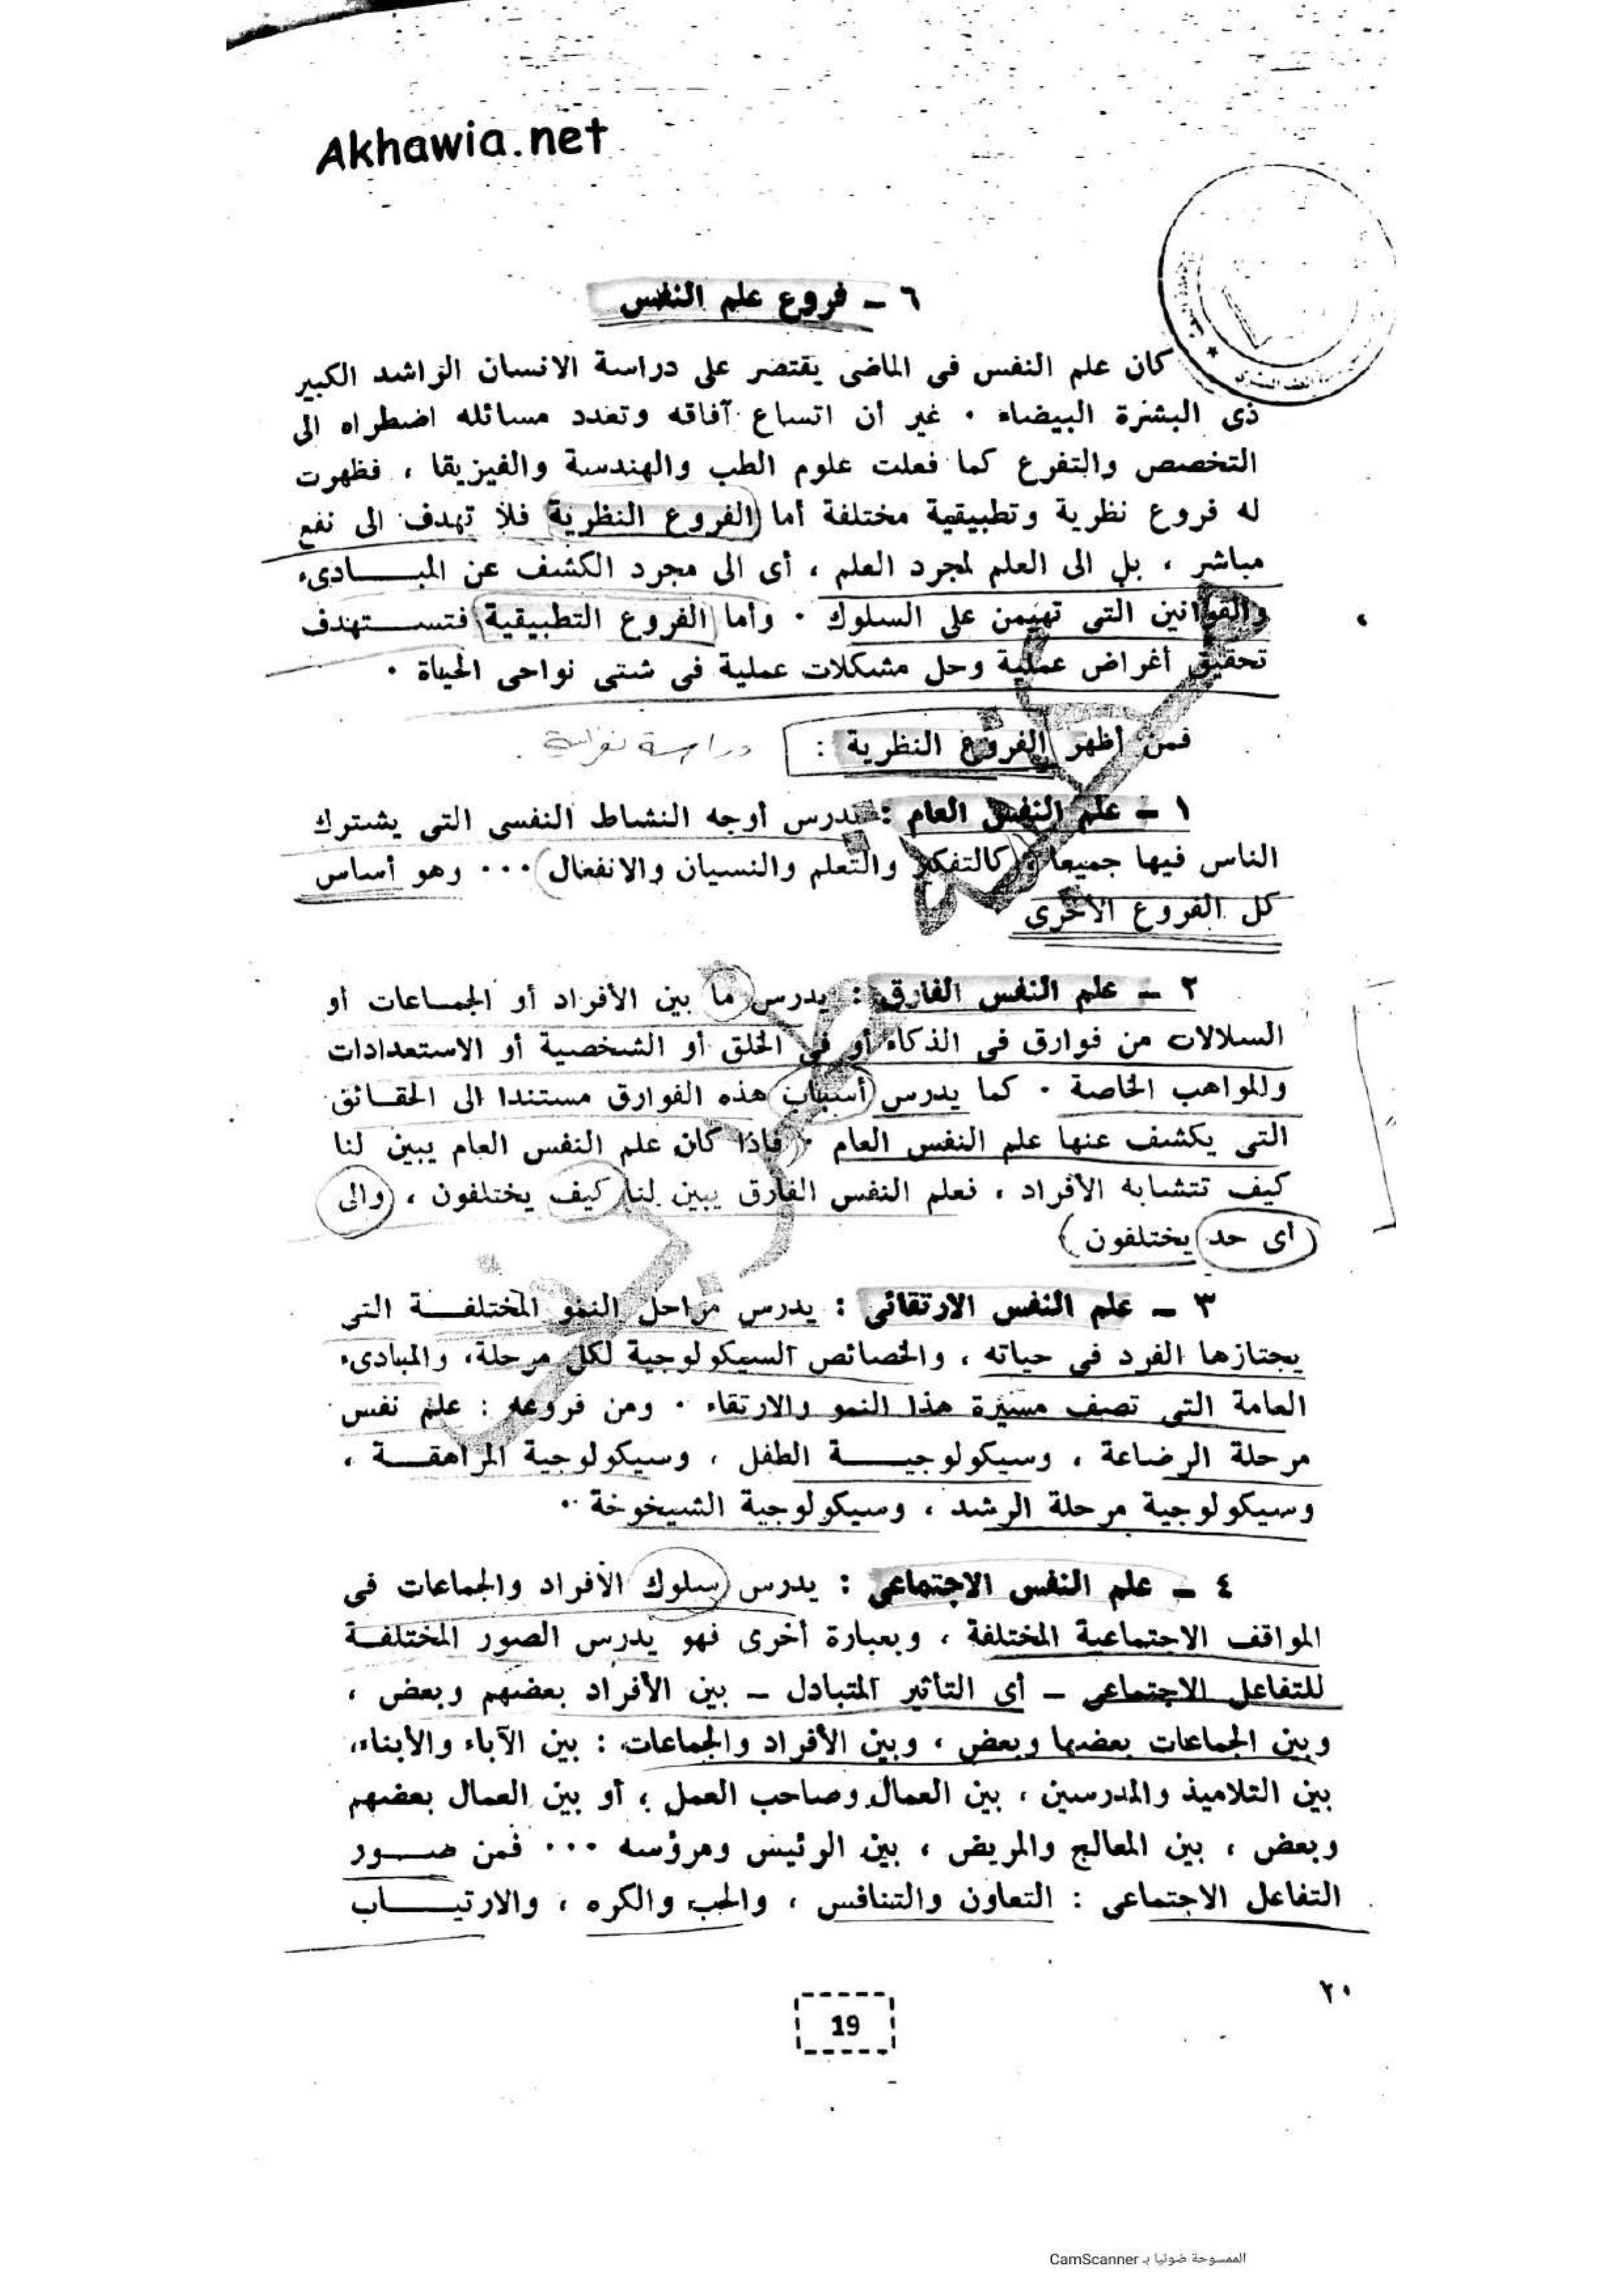 Akhawia.net
٦ ـ فروع علم النفس
كان علم النفس فى الماضى يقتصر على دراسة الانسان الراشد الكبير
ذى البشرة البيضاء ٠ غير أن اتساع آفاقه وتعدد مسائله اضطراه الى
التخصص والتفرع كما فعلت علوم الطب والهندسة والفيزيقا ، فظهرت
له فروع نظرية وتطبيقية مختلفة أما الفروع النظرية فلا تهدف الى نفع
مباشر ، بل الى العلم لمجرد العلم ، أى الى مجرد الكشف عن المبـــادىء
والقوانين التى تهيمن على السلوك ٠ وأما الفروع التطبيقية فتســتهدف
تحقيق أغراض عملية وحل مشكلات عملية فى شتى نواحى الحياة ٠
فمن أظهر الفروع النظرية :
دراسة
١ ـ علم النفس العام : يدرس أوجه النشاط النفسى التى يشترك
الناس فيها جميعا (كالتفكير والتعلم والنسيان والانفعال) ٠٠٠ وهو أساس
كل الفروع الأخرى
٢ ـ علم النفس الفارق : يدرس ما بين الأفراد أو الجمـاعات أو
السلالات من فوارق فى الذكاء أو فى الخلق أو الشخصية أو الاستعدادات
والمواهب الخاصة ٠ كما يدرس أسباب هذه الفوارق مستندا الى الحقـائق
التى يكشف عنها علم النفس العام ٠ فاذا كان علم النفس العام يبين لنا
كيف تتشابه الأفراد ، فعلم النفس الفارق يبين لنا كيف يختلفون ، والى
أى حد يختلفون
٣ ـ علم النفس الارتقائى : يدرس مراحل النمو المختلفــة التى
يجتازها الفرد فى حياته ، والخصائص السيكولوجية لكل مرحلة، والمبادىء
العامة التى تصف مسيرة هذا النمو والارتقاء ٠ ومن فروعه : علم نفس
مرحلة الرضاعة ، وسيكولوجيـــة الطفل ، وسيكولوجية المراهقــة ،
وسيكولوجية مرحلة الرشد ، وسيكولوجية الشيخوخة ٠٠
٤ ـ علم النفس الاجتماعى : يدرس سلوك الأفراد والجماعات فى
المواقف الاجتماعية المختلفة ، وبعبارة أخرى فهو يدرس الصور المختلفــة
للتفاعل الاجتماعى ـ أى التأثير المتبادل ـ بين الأفراد بعضهم وبعض ،
وبين الجماعات بعضها وبعض ، وبين الأفراد والجماعات : بين الآباء والأبناء،
بين التلاميذ والمدرسين ، بين العمال وصاحب العمل ، أو بين العمال بعضهم
وبعض ، بين المعالج والمريض ، بين الرئيس ومرؤسه ٠٠٠ فمن صــور
التفاعل الاجتماعى : التعاون والتنافس ، والحب والكره ، والارتيـــاب
٢٠
19
الممسوحة ضوئيا بـ CamScanner